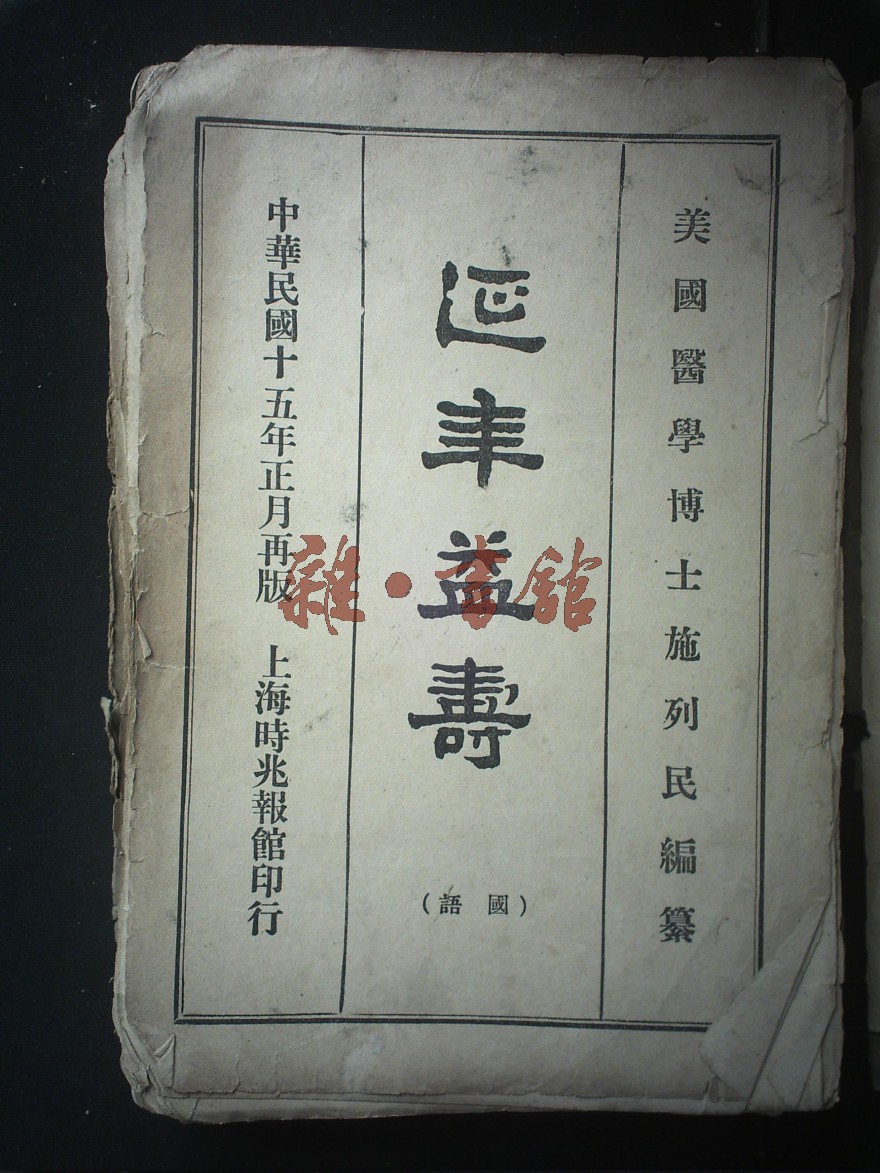 美國醫學博士施列民編纂
延年益壽
（國語）
中華民國十五年正月再版　上海時兆報館印行
雜·書館